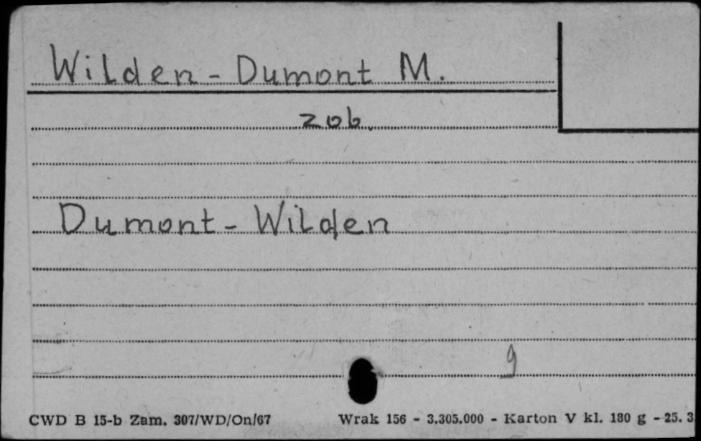 Wilden - Dumont M.
zob.
Dumont - Wilden
9
CWD B 15-b Zam. 307/WD/On/67 Wrak 156 - 3.305.000 - Karton V kl. 180 g - 25. 3